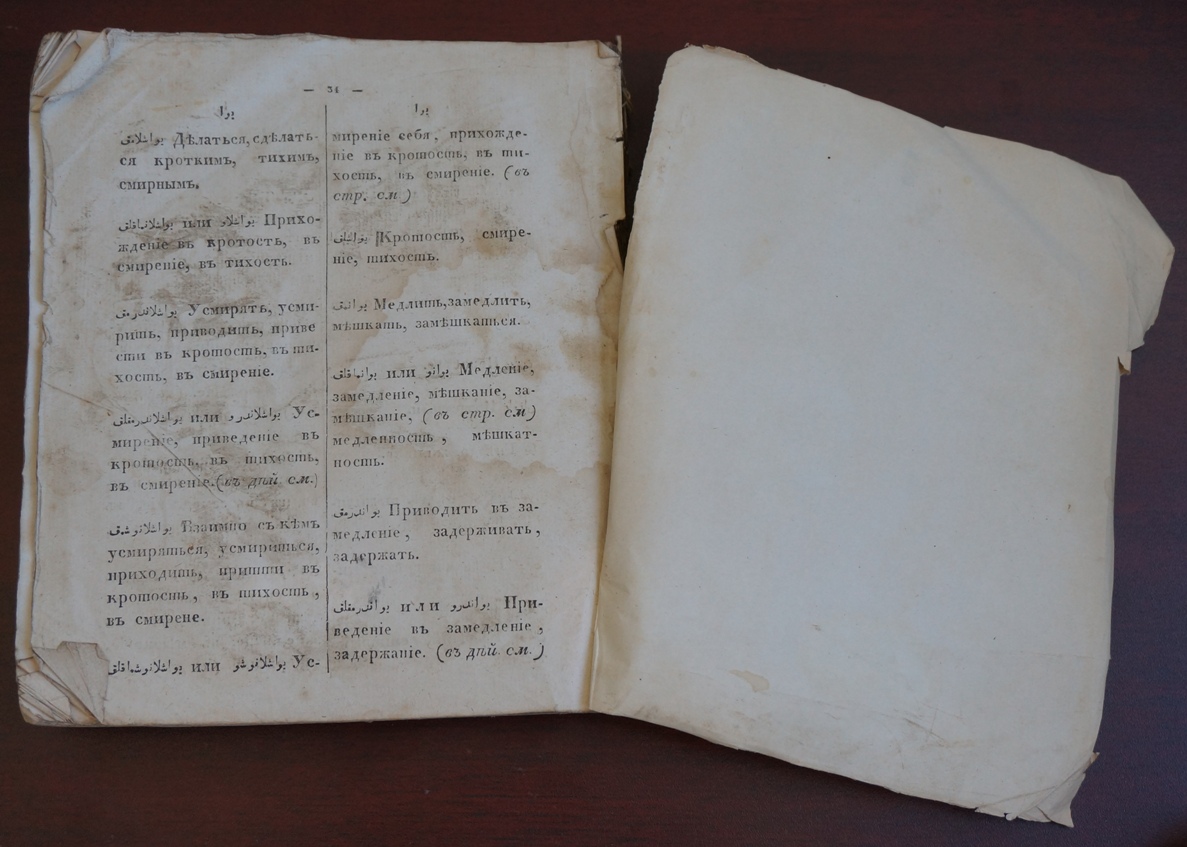 — 34 —
یوا
یواشلانمق Дѣлаться, сдѣлать-
ся кроткимъ, тихимъ,
смирнымъ.
یواشلانماقلق или یواشلانو Прихо-
жденіе въ кротость, въ
смиреніе, въ тихость.
یواشلاندرمق Усмирять, усми-
рить, приводить, приве
сти въ кротость, въ ти-
хость, въ смиреніе.
یواشلاندرمقلق или یواشلاندرو Ус-
миреніе, приведеніе въ
кротость, въ тихость,
въ смиреніе. (въ дѣй см.)
یواشلانوشمق Взаимно съ кѣмъ
усмиряться, усмириться,
приходить, притти въ
кротость, въ тихость,
въ смирене.
یواشلانوشماقلق или یواشلانوشو Ус-
یوا
миреніе себя, прихожде-
ніе въ кротость, въ ти-
хость, въ смиреніе. (въ
стр. см)
یواشلق Кротость, смире-
ніе, тихость.
یوانمق Медлить, замедлить,
мѣшкать, замѣшкаться.
یوانماقلق или یوانو Медленіе,
замедленіе, мѣшканіе, за-
мѣшканіе, (въ стр. см)
медленность, мѣшкат-
ность.
یواندرمق Приводить въ за-
медленіе, задерживать,
задержать.
یواندرمقلق или یواندرو При-
веденіе въ замедленіе,
задержаніе. (въ дѣй. см.)